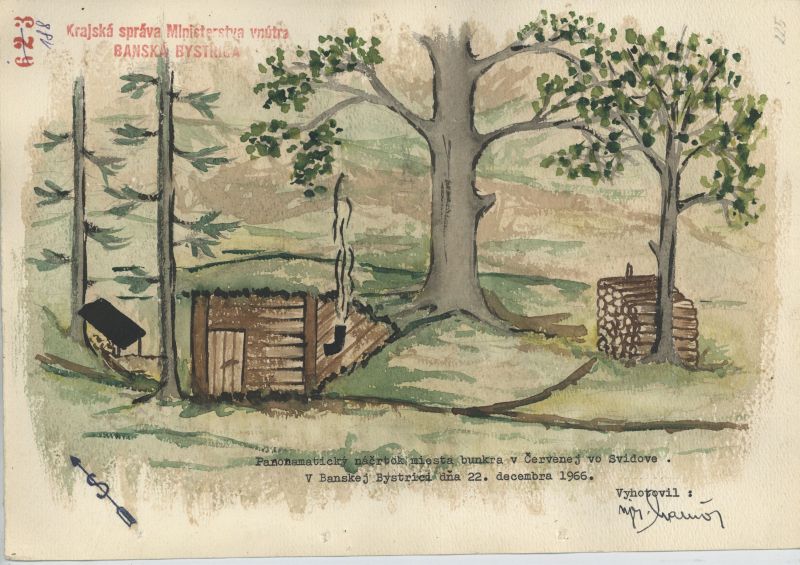 623
188
Krajská správa Ministerstva vnútra
BANSKÁ BYSTRICA
225
Panoramatický náčrtok miesta bunkra v Červenej vo Svidove .
V Banskej Bystrici dňa 22. decembra 1966.
Vyhotovil :
S